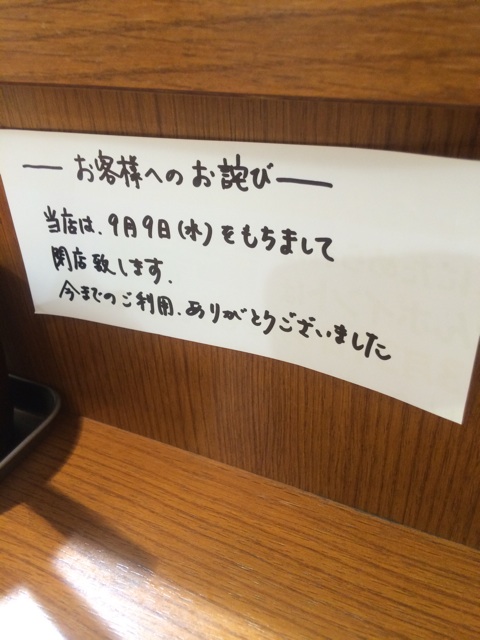 — お客様へのお詫び —
当店は、9月9日(水)をもちまして
閉店致します.
今までのご利用、ありがとうございました